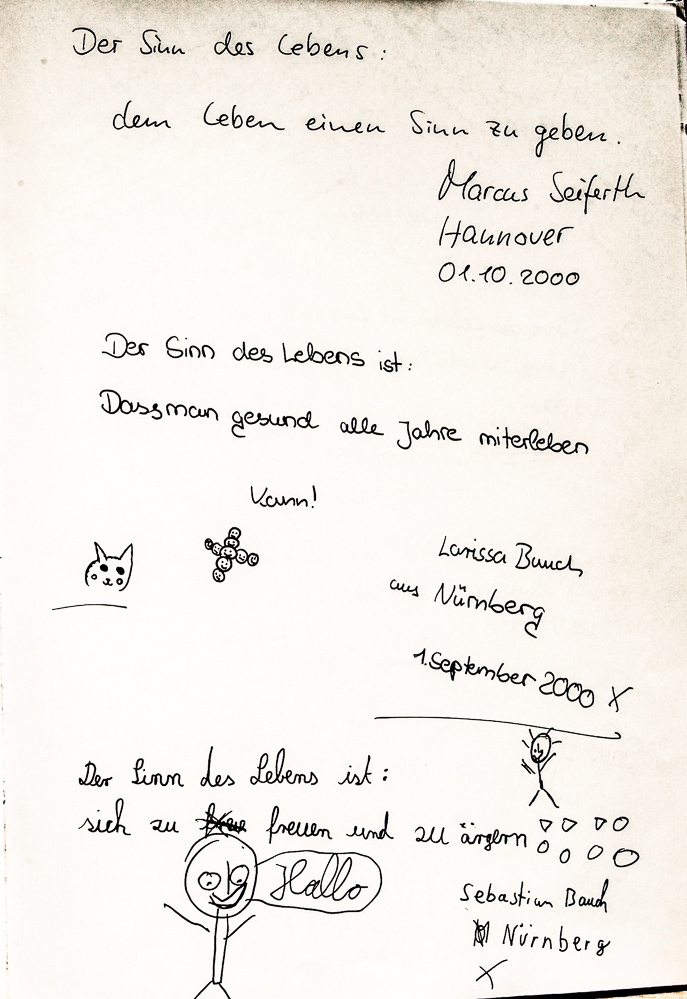 Der Sinn des Lebens:
dem Leben einen Sinn zu geben.
Marcus Seiferth
Hannover
01.10.2000
Der Sinn des Lebens ist:
Dass man gesund alle Jahre miterleben
kann!
Larissa Bauch
aus Nürnberg
1. September 2000 X
Der Sinn des Lebens ist:
sich zu freuen und zu ärgern
Hallo
Sebastian Bauch
Nürnberg
X